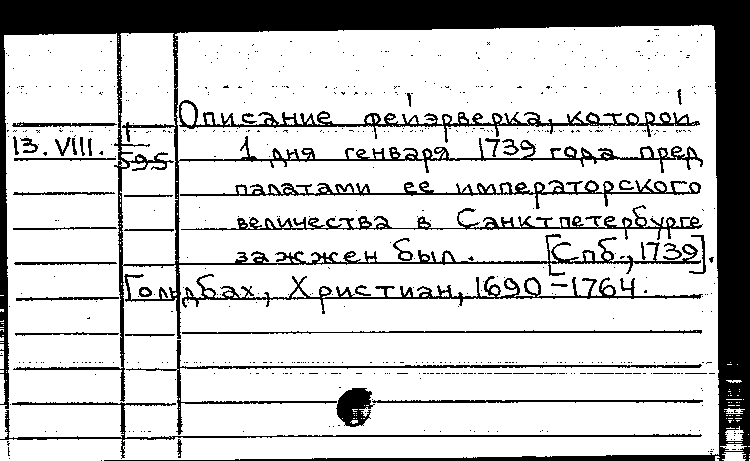 Описание фейэрверка, которой
13. VIII. 1/595 1 дня генваря 1739 года пред
палатами ее императорского
величества в Санктпетербурге
зажжен был. [Спб., 1739].
Гольдбах, Христиан, 1690-1764.